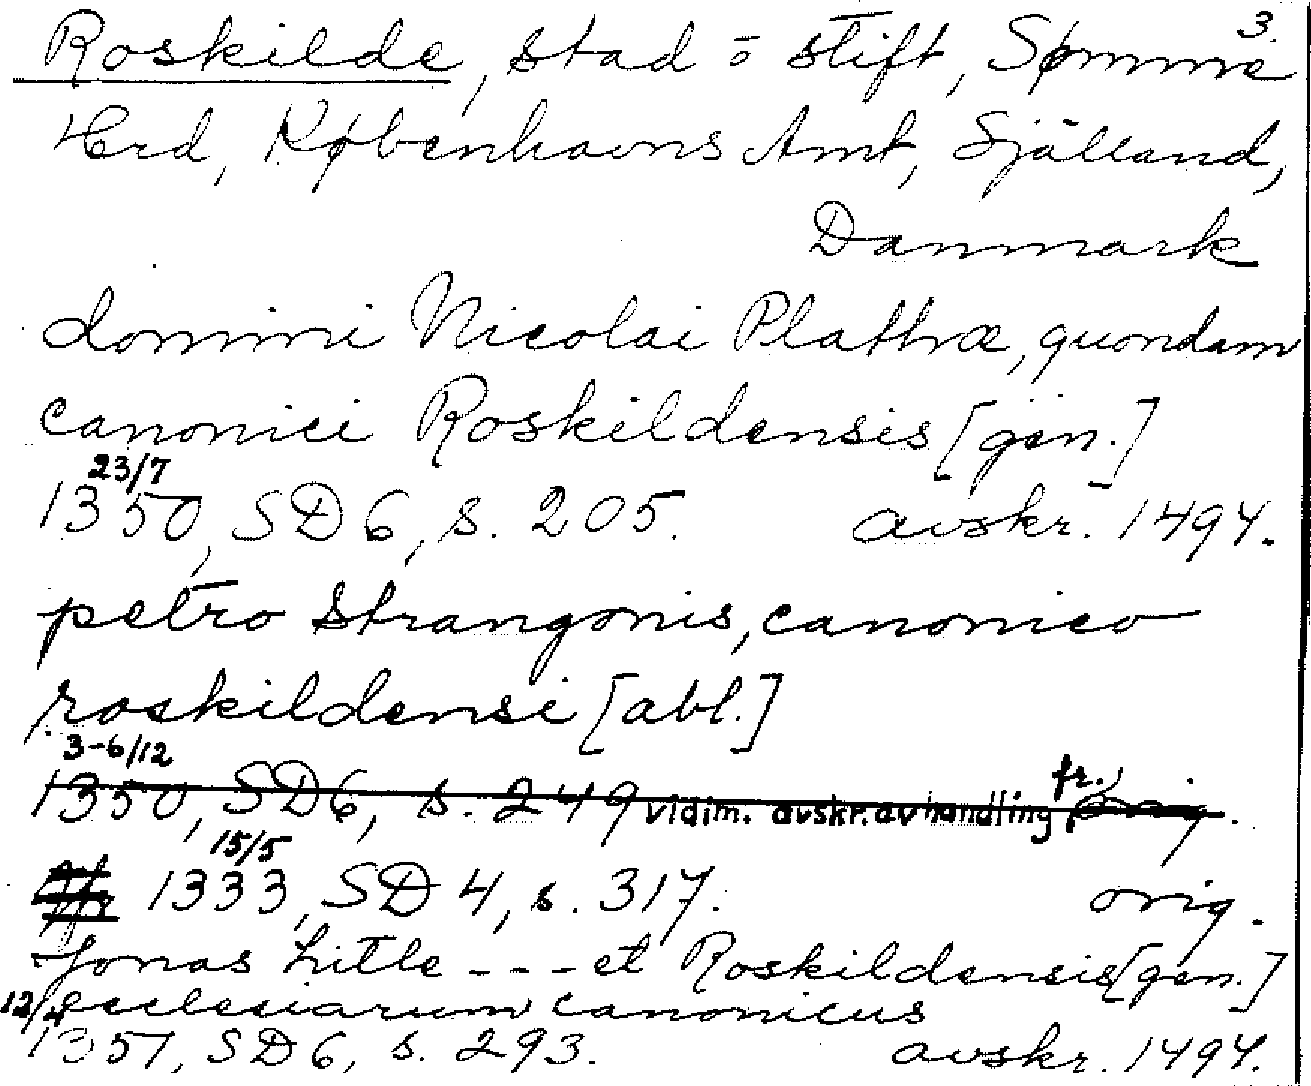 3.
Roskilde, stad o stift, Sømme
Hrd, Københavns Amt, Själland,
Danmark
domini Nicolai Plathæ, quondam
canonici Roskildensis [gen.]
23/7
1350, SD 6, s. 205. avskr. 1494.
petro Strangonis, canonico
roskildensi [abl.]
3-6/12 fr.
1350, SD 6, s. 249 vidim. avskr. av handling, orig.
15/5
1333, SD 4, s. 317. orig.
Jonas Litle --- et Roskildensis [gen.]
ecclesiarum canonicus
12/4
1351, SD 6, s. 293. avskr. 1494.